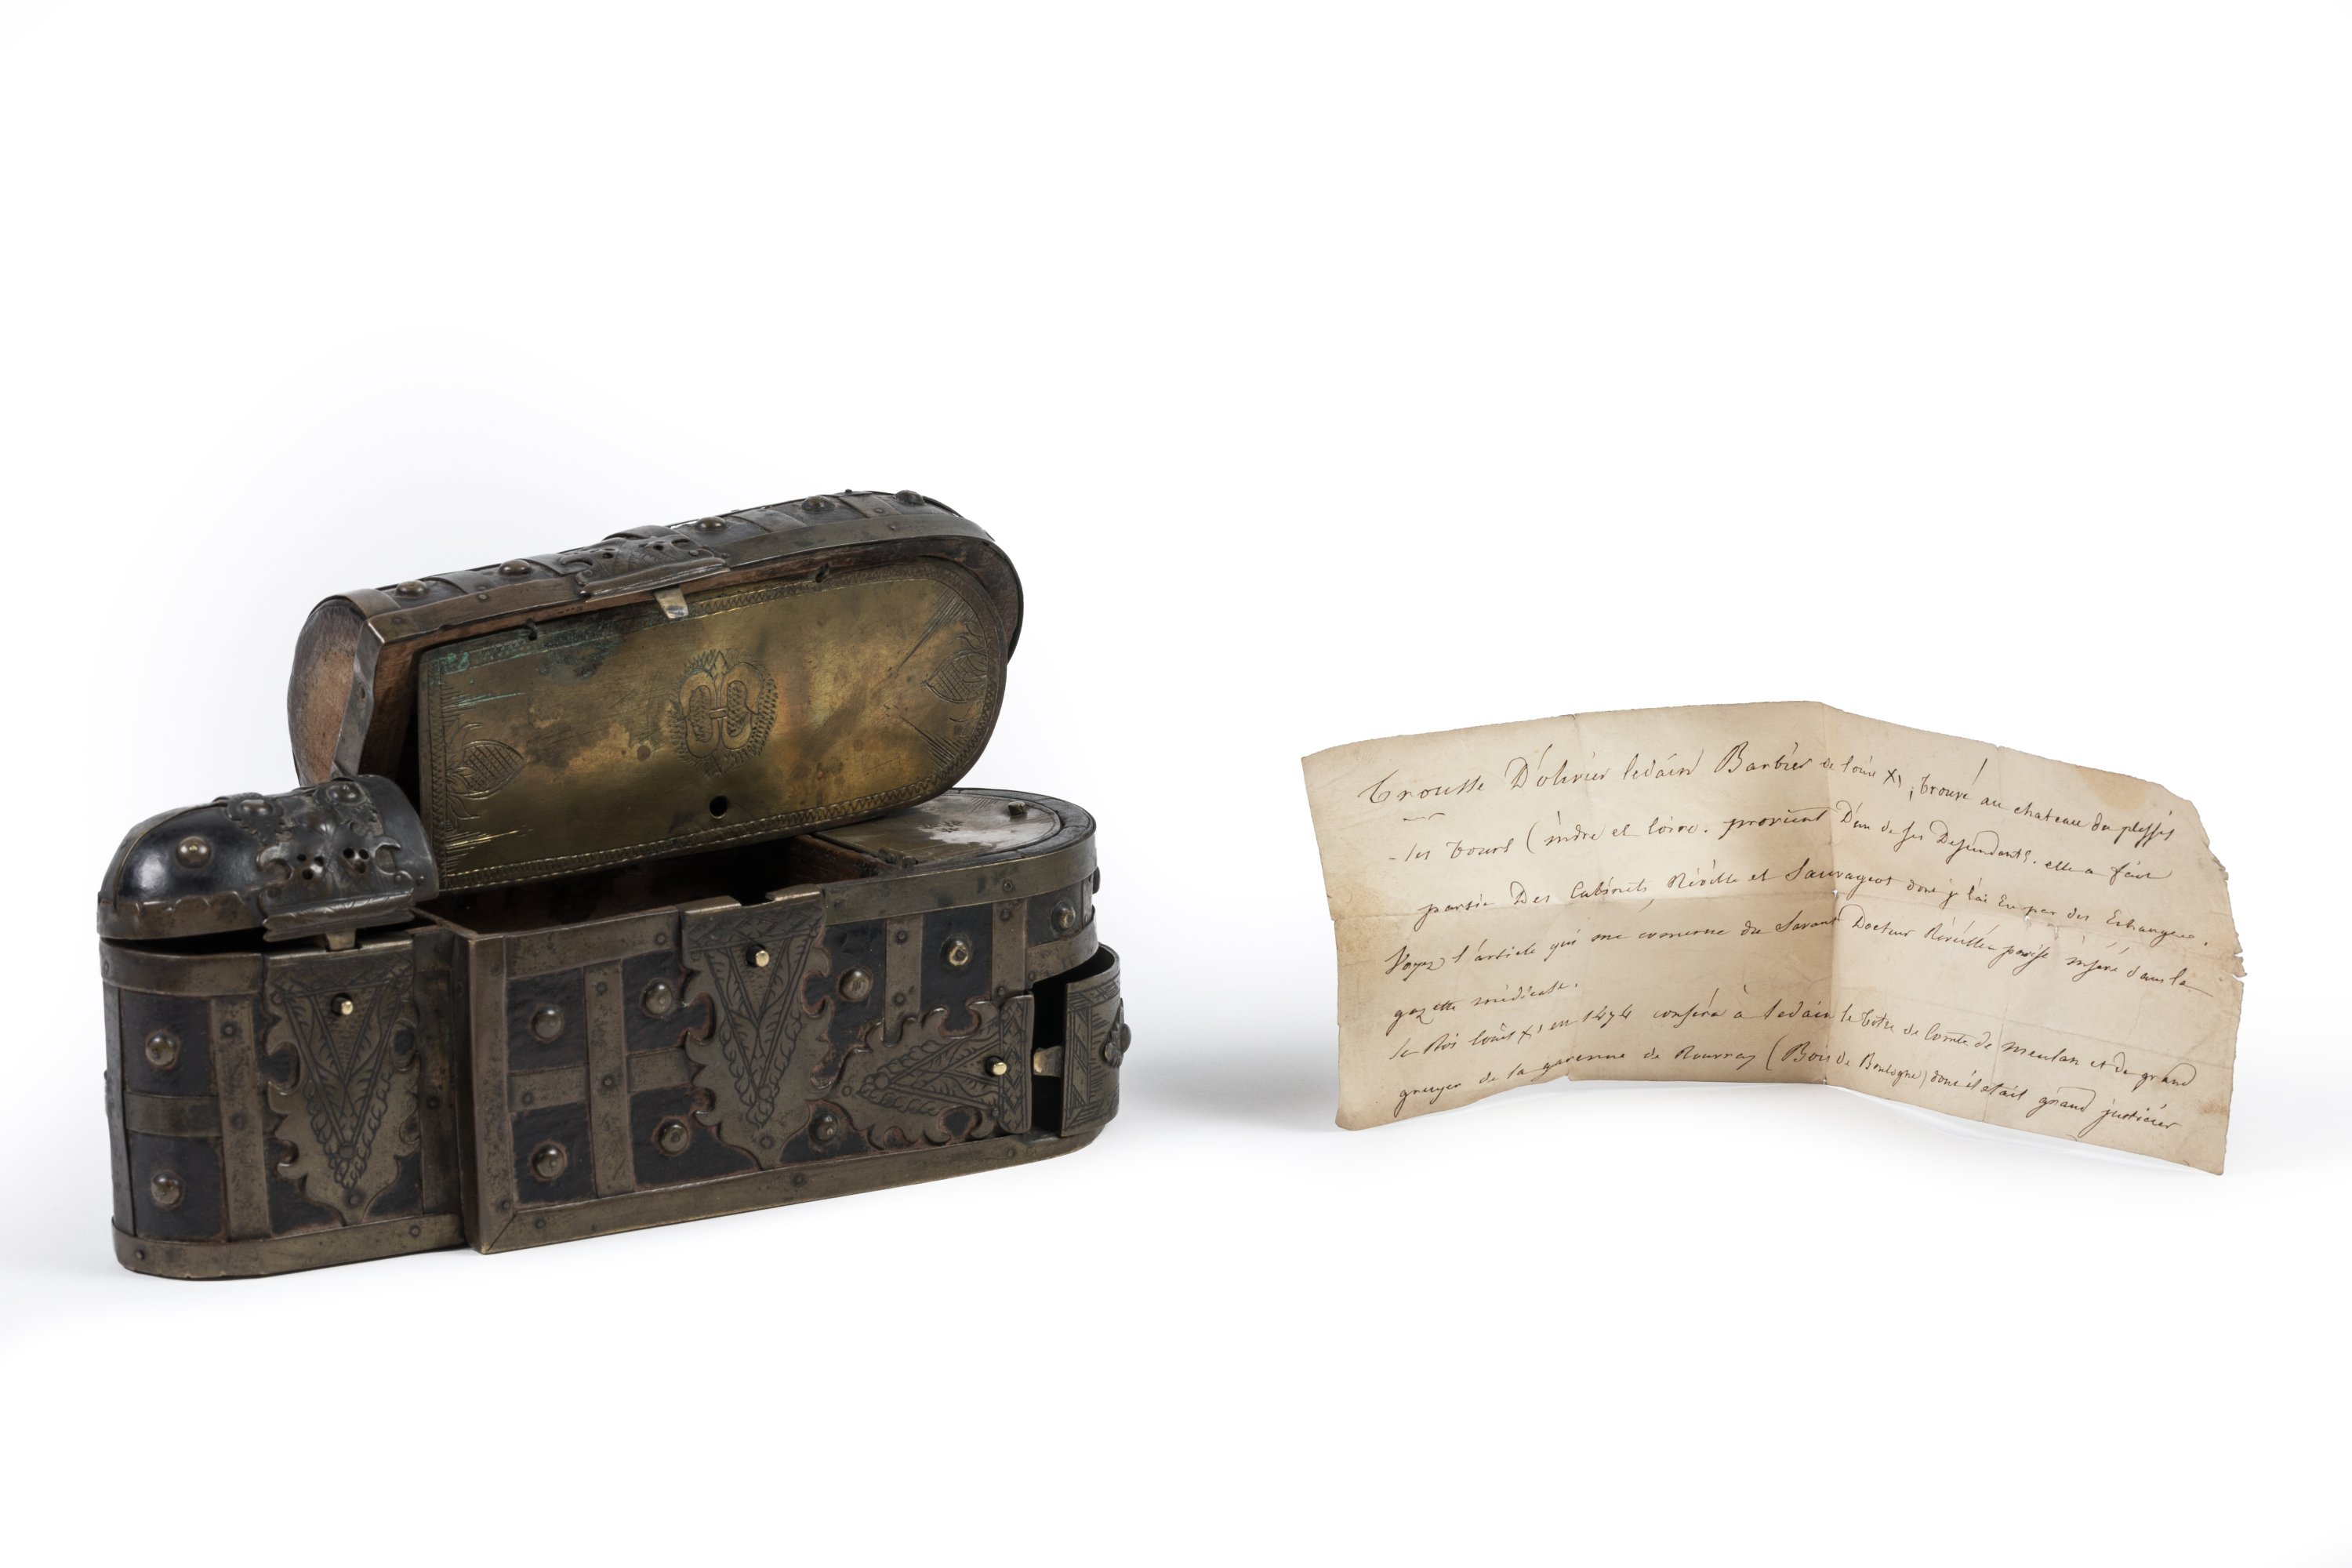 Trousse D'olivier ledain Barbier de loüis XI, trouvé au chateau du plessis
-les tours (indre et loire. provient D'un de ses Desendants. elle a fait
partie Des Cabinets Réville et Sauvageot dont j l'ai Eu par des Echanges.
Voyez l'article qui me concerne du Savant Docteur Réveillée parise inséré dans la
gazette médicale.
Le Roi loüis XI en 1474 conféra à ledain le titre de Comte de meulan et de grand
gruyer de la garenne de Rouvray (Bois de Boulogne) dont il etait grand justicier